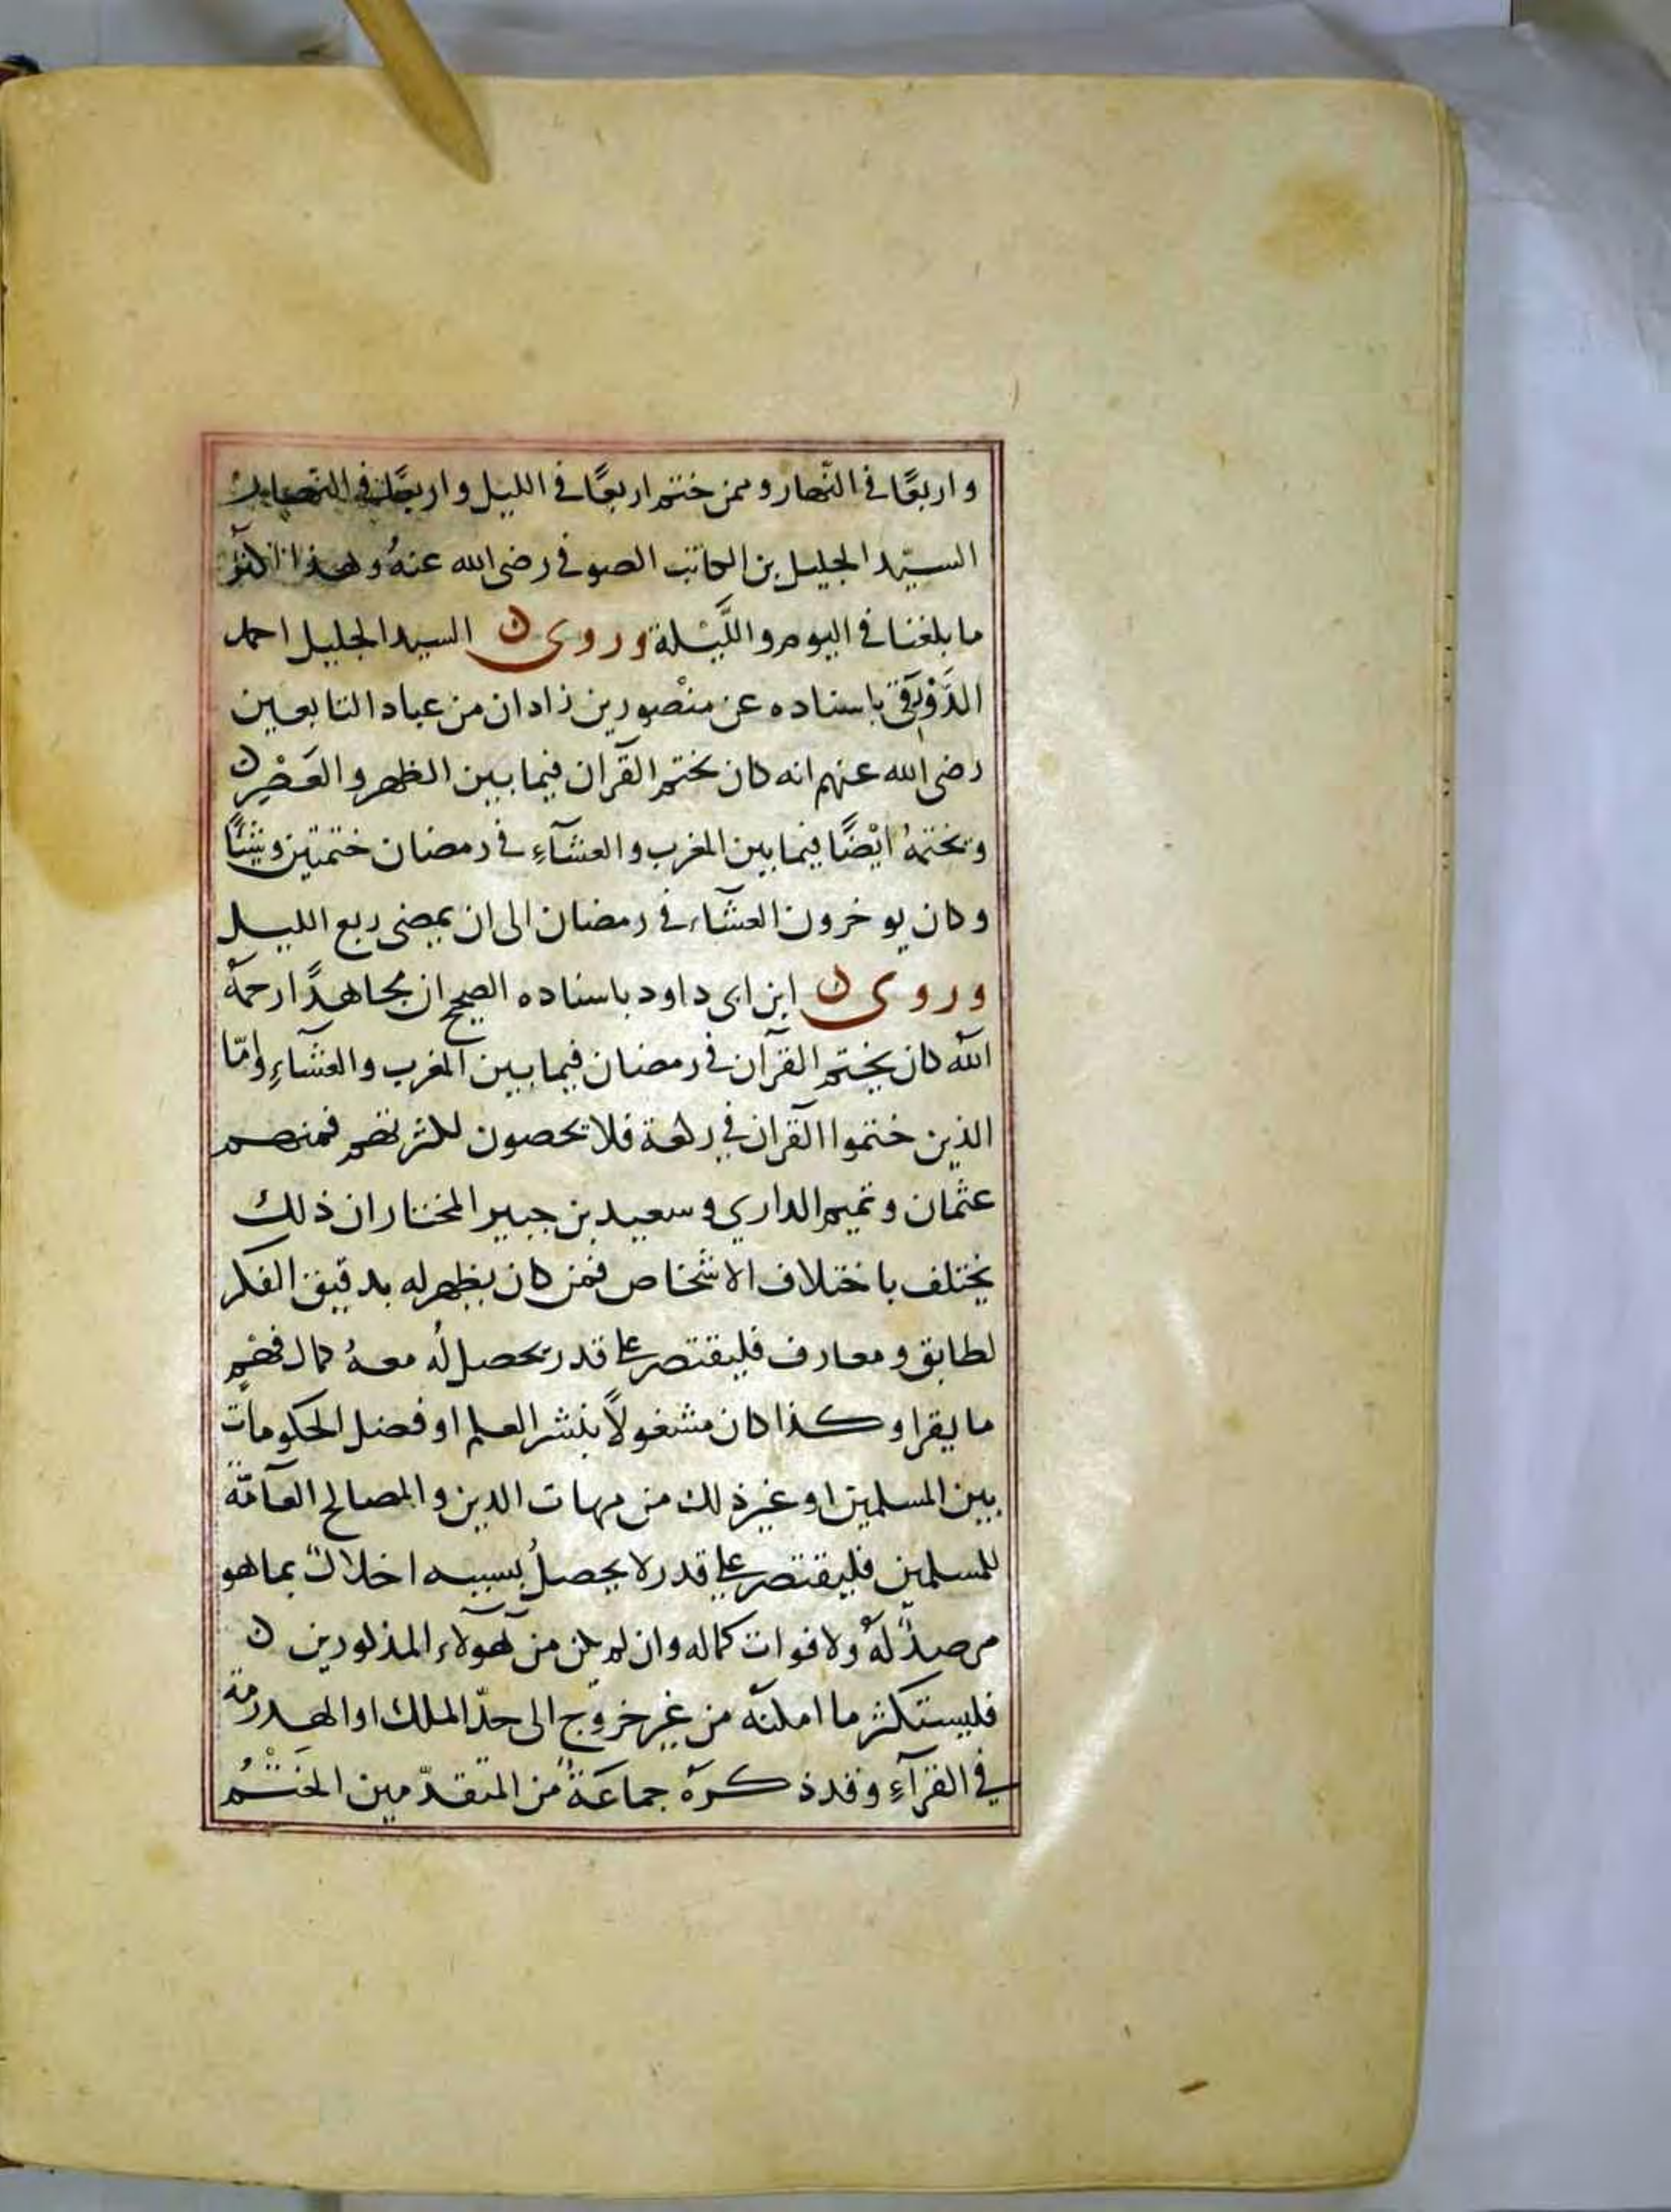 واربعًا في النّهار وممن ختم اربعًا في الليل واربعًا في النهار
السيّد الجليل بن الكاتب الصوفي رضى الله عنهُ وهذا اكثر
ما بلغنا في اليوم واللَّيْلة وروى ن السيد الجليل احمد
الدَّوْرقي باسناده عن منْصور بن زادان من عباد التابعين
رضى الله عنهم انه كان يختم القرآن فيما بين الظهر والعَصْرِ ن
ويختمهُ ايْضًا فيما بين المغرب والعشآءِ في رمضان ختمتين وشيْئًا
وكان يوخرون العشاء في رمضان الى ان يمضى ربع الليل
وروى ن ابن ابى داود باسناده الصحيح ان مجاهدًا رحمهُ
الله كان يختم القرآن في رمضان فيما بين المغرب والعشاءِ وامّا
الذين ختموا القرآن في ركعة فلا يحصون لكثرتهم فمنهم
عثمان وتميم الداري وسعيد بن جبير المختار ان ذلك
يختلف باختلاف الاشخاص فمن كان يظهر له بدقيق الفكر
لطايق ومعارف فليقتصر على قدر يحصل لُه معهُ كمال فهْمِ
ما يقرا وكذا كان مشغولاً بنشر العلم او فصل الحكومات
بين المسلمين او غير ذلك من مهات الدين والمصالح العآمّة
للمسلمين فليقتصر على قدر لا يحصلُ بسببه اخلالٌ بما هو
مرصدٌ لهُ ولا فوات كماله وان لم يكن من هولاء المذكورين ن
فليستكثر ما امكنه من غير خروج الى حدّ الملك او الهدرمة
في القرآءِ وقد ذكرهَ جماعَةٌ من المتقدّمين الخَتْمُ